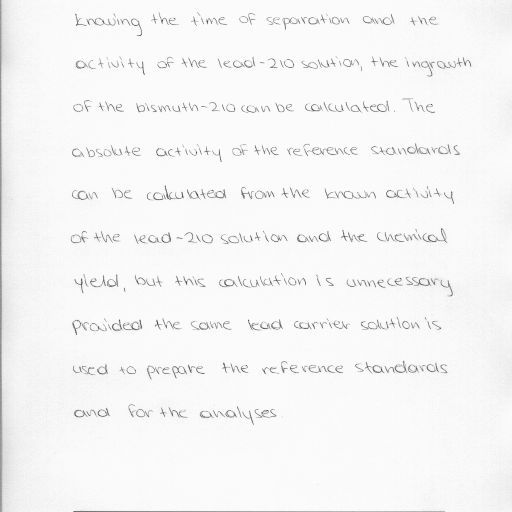 knowing the time of separation and the
activity of the lead-210 solution, the ingrowth
of the bismuth-210 can be calculated. The
absolute activity of the reference standards
can be calculated from the known activity
of the lead-210 solution and the chemical
yield, but this calculation is unnecessary
provided the same lead carrier solution is
used to prepare the reference standards
and for the analyses.